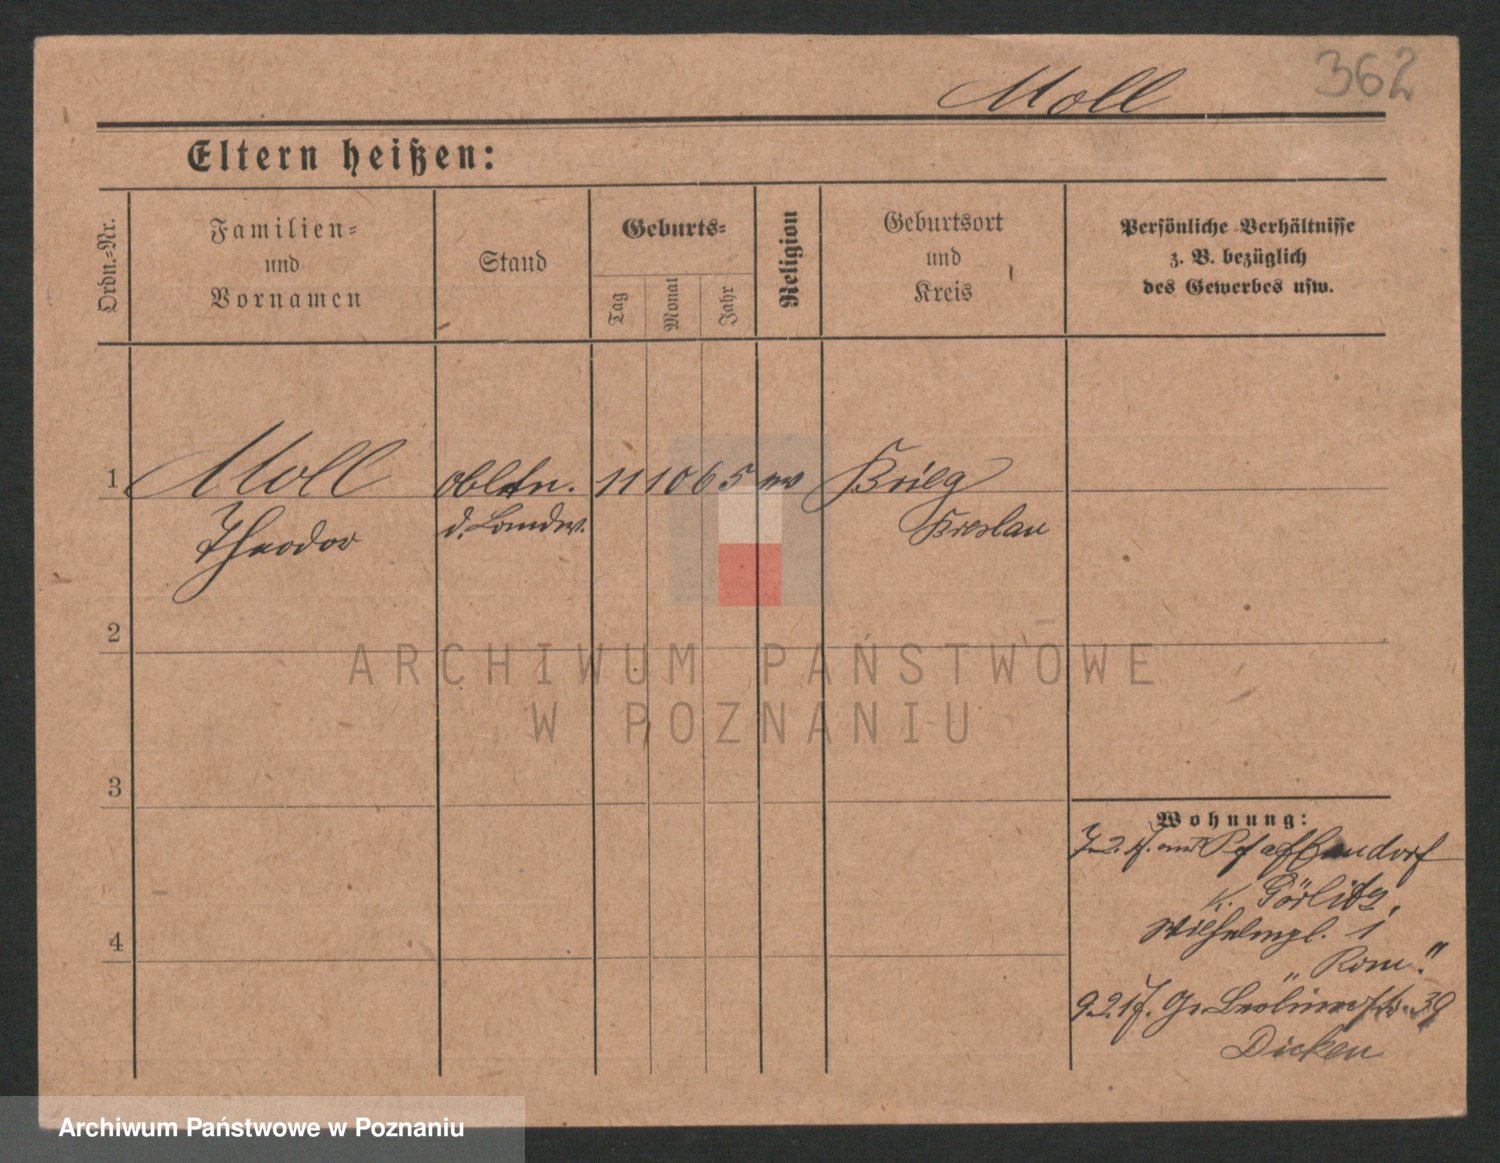 362
Moll
Eltern heißen:
Ordn.-Nr.
Familien-
und
Vornamen
Stand
Geburts-
Tag
Monat
Jahr
Religion
Geburtsort
und
Kreis
Persönliche Verhältnisse
z. B. bezüglich
des Gewerbes usw.
1
Moll
Theodor
Obltn.
d. Landw.
11
10
65
ev
Brieg
Breslau
2
3
4
Wohnung:
7.2.17. aus Pfaffendorf
K. Görlitz,
Wilhelmpl. 1
„Rom"
9.2.17. Gr. Berlinerstr. 39
Dicken
ARCHIWUM PAŃSTWOWE
W POZNANIU
Archiwum Państwowe w Poznaniu